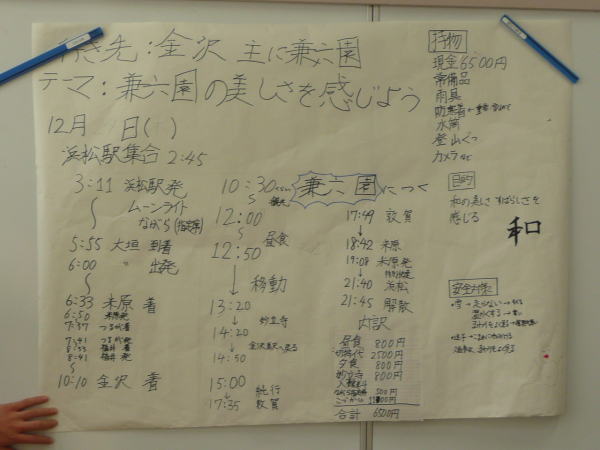 行き先：金沢 主に兼六園
テーマ：兼六園の美しさを感じよう
12月 日( )
浜松駅集合 2:45
3:11 浜松駅発
ムーンライト
ながら(指定席)
5:55 大垣 到着
6:00 〃 出発
6:33 米原 着
6:50 米原発
7:37 つるが着
7:41 つるが発
8:33 福井 着
8:41 福井 発
10:10 金沢 着
10:30 兼六園につく
12:00
昼食
12:50
移動
13:20
妙立寺
14:20
金沢駅へ戻る
14:50
15:00
続行
17:35 敦賀
17:49 敦賀
18:42 米原
19:08 米原発
21:40 浜松
21:45 解散
内訳
昼食 800円
切符代 2500円
夕食 800円
妙立寺 800円
入館料
500円
合計 6500円
持物
現金6500円
常備品
雨具
防寒着
水筒
登山ぐつ
カメラ など
目的
和の美しさ すばらしさを
感じる
和
安全対策
・雪→走らない